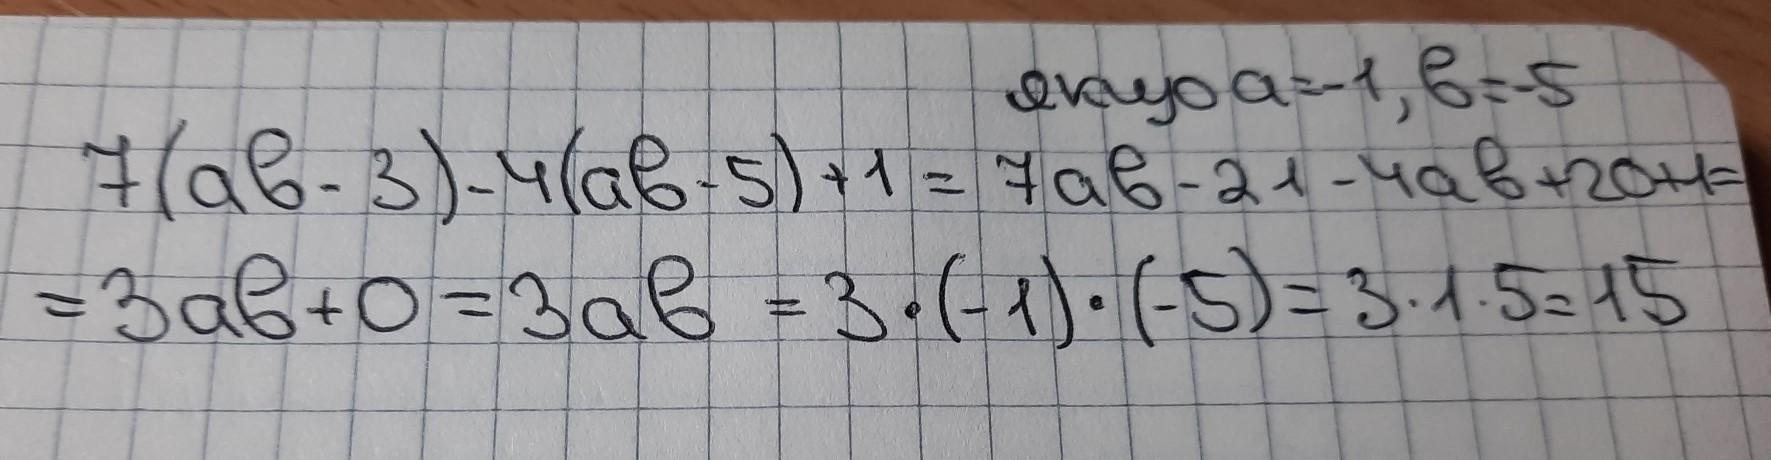 якщо a=-1, b=-5
7(ab-3)-4(ab-5)+1=7ab-21-4ab+20+1=
=3ab+0=3ab=3·(-1)·(-5)=3·1·5=15